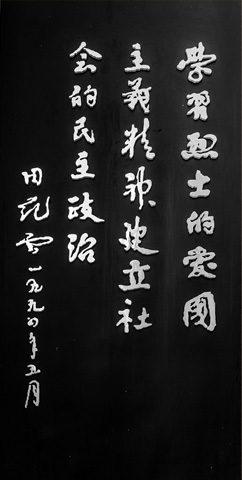 學習烈士的愛國
主義精神建立社
会的民主政治
田紀雲一九九〇年五月